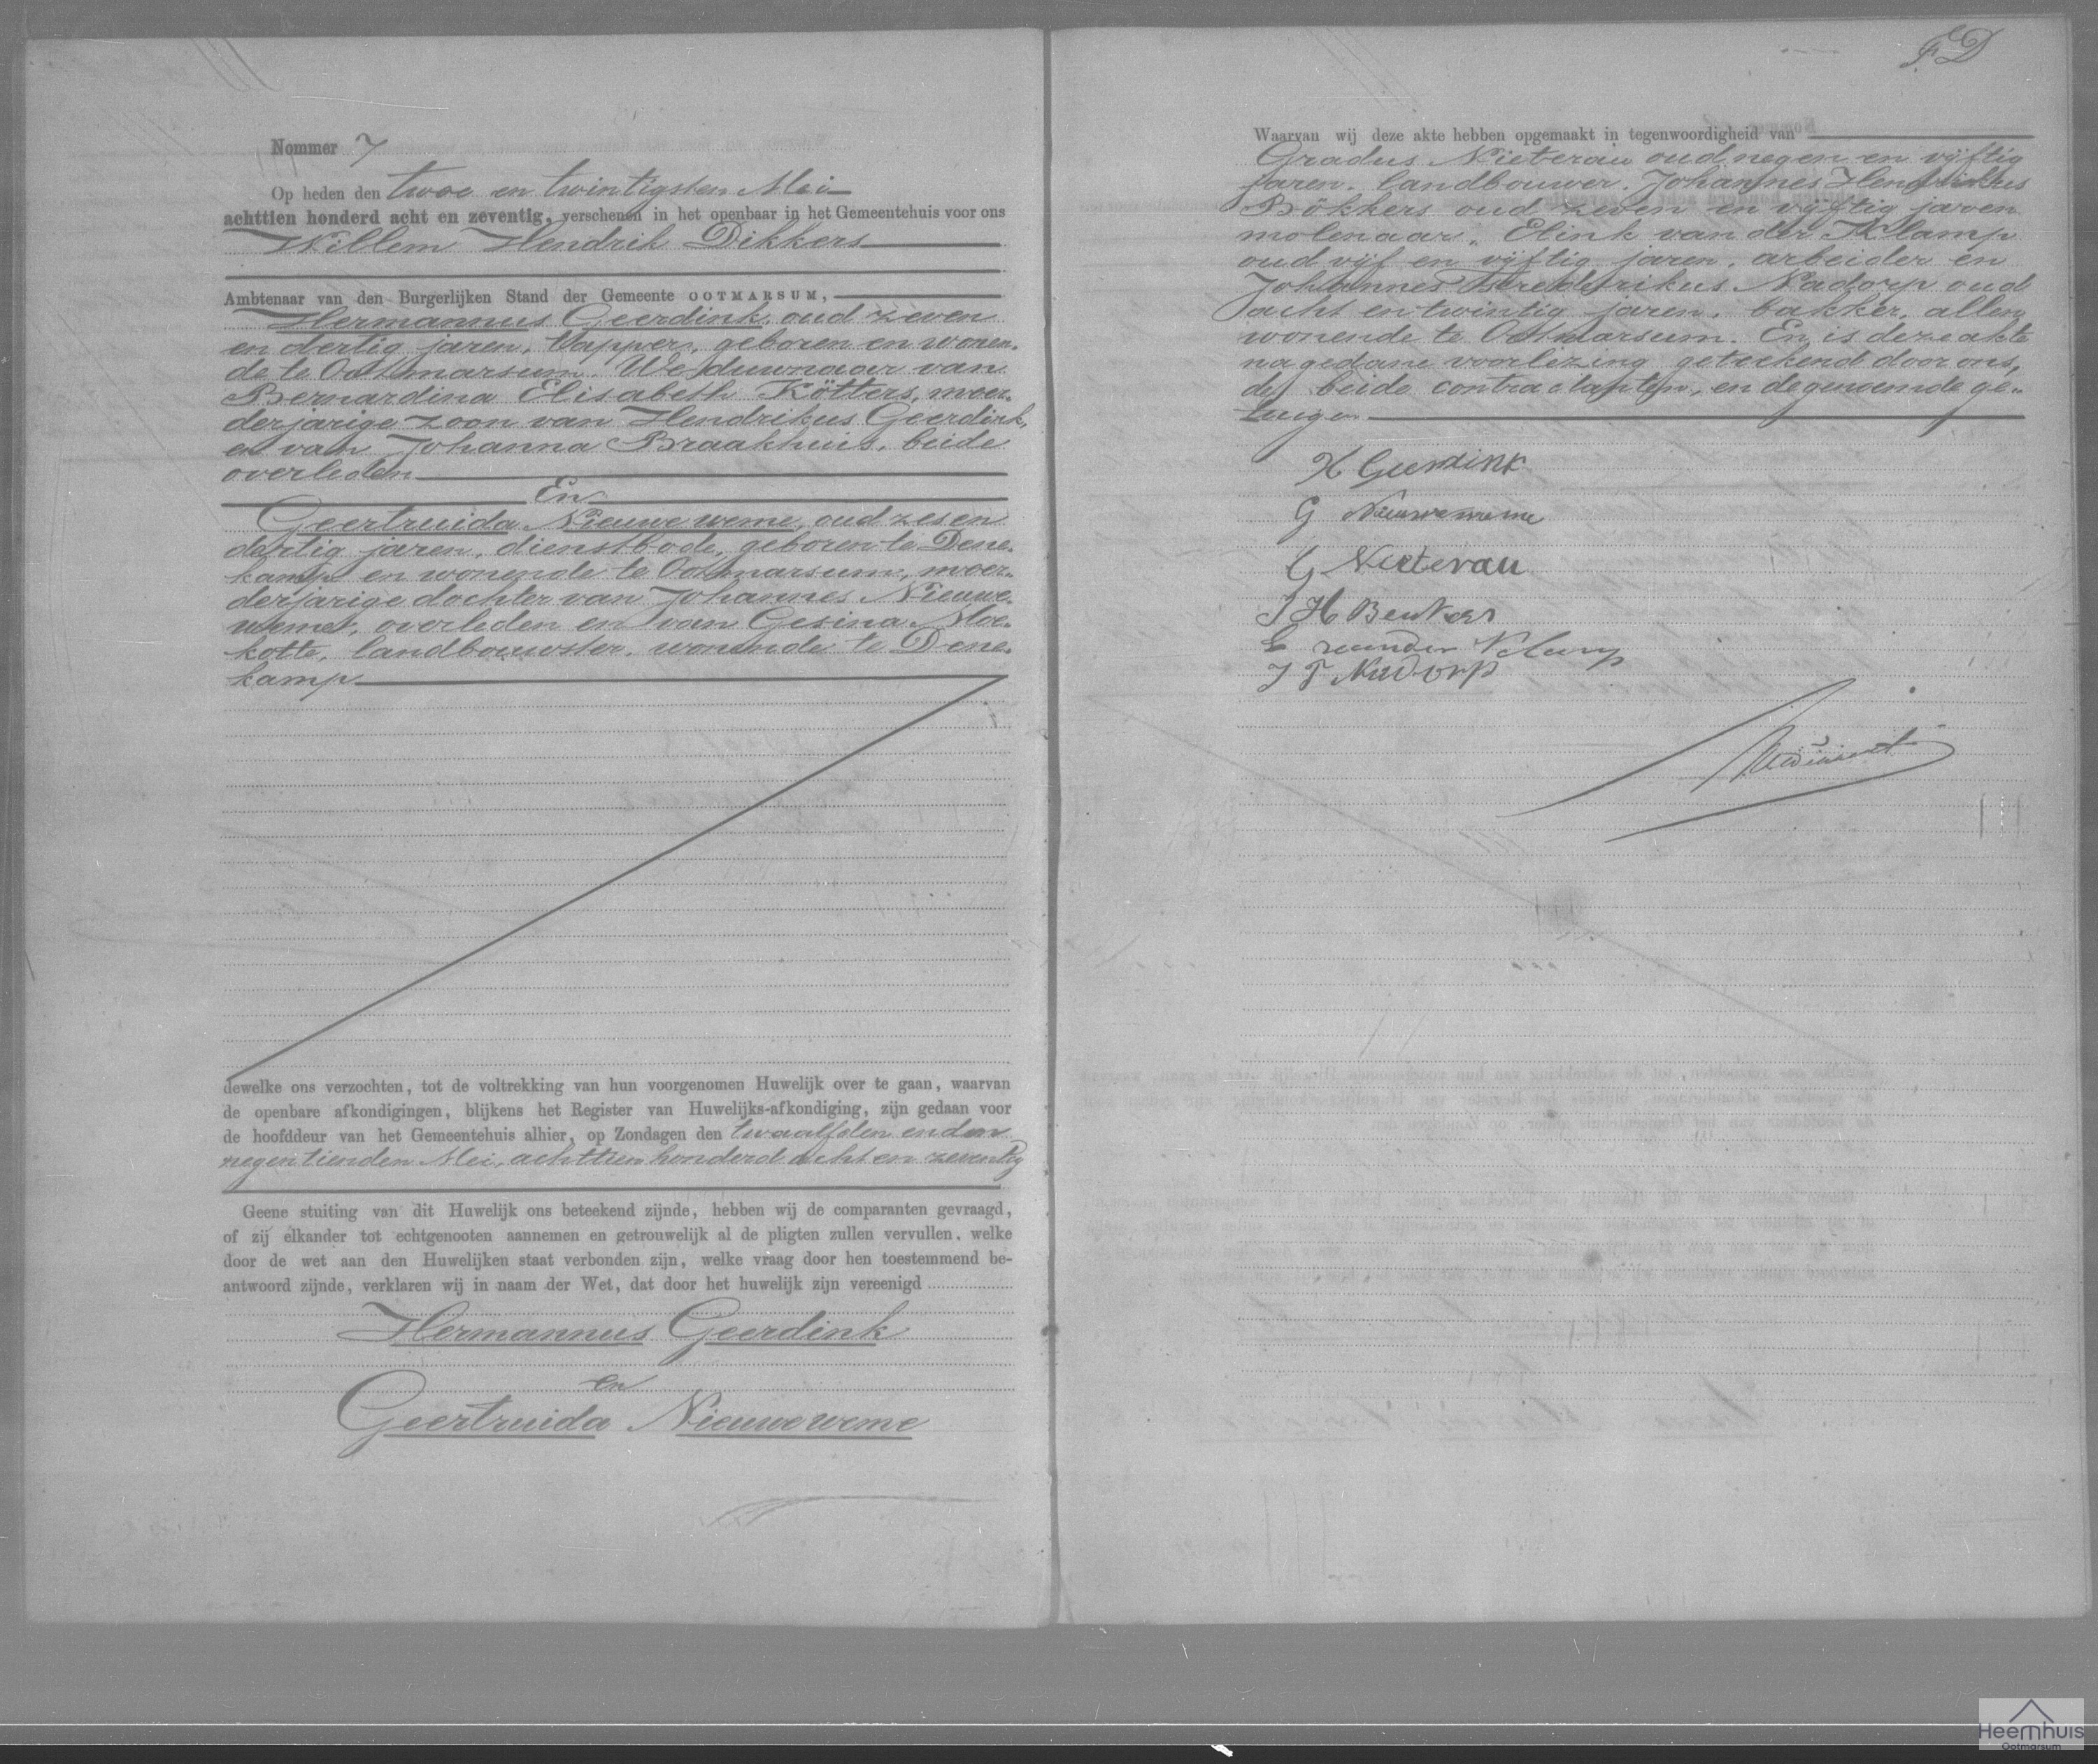 Nommer 7
Op heden den twee en twintigsten Mei
achttien honderd acht en zeventig, verschenen in het openbaar in het Gemeentehuis voor ons
Willem Hendrik Dikkers
Ambtenaar van den Burgerlijken Stand der Gemeente OOTMARSUM,
Hermannus Geerdink, oud zeven
en dertig jaren, geboren en wonen-
de te Ootmarsum. Weduwnaar van
Bernardina Elisabeth Kötters, meer-
derjarige zoon van Hendrikus Geerdink,
en van Johanna Braakhuis, beide
overleden
En
Geertruida Nieuwe weme, oud zes en
dertig jaren, dienstbode, geboren te Dene-
kamp en wonende te Ootmarsum, meer-
derjarige dochter van Johannes Nieuwe-
weme, overleden en van Gesina Moe-
kotte, landbouwster, wonende te Dene-
kamp
dewelke ons verzochten, tot de voltrekking van hun voorgenomen Huwelijk over te gaan, waarvan
de openbare afkondigingen, blijkens het Register van Huwelijks-afkondiging, zijn gedaan voor
de hoofddeur van het Gemeentehuis alhier, op Zondagen den twaalfden en den
negentienden Mei, achttien honderd acht en zeventig
Geene stuiting van dit Huwelijk ons beteekend zijnde, hebben wij de comparanten gevraagd,
of zij elkander tot echtgenooten aannemen en getrouwelijk al de pligten zullen vervullen, welke
door de wet aan den Huwelijken staat verbonden zijn, welke vraag door hen toestemmend be-
antwoord zijnde, verklaren wij in naam der Wet, dat door het huwelijk zijn vereenigd
Hermannus Geerdink
en
Geertruida Nieuwe weme
Waarvan wij deze akte hebben opgemaakt in tegenwoordigheid van
Gradus Nieterau oud negen en vijftig
jaren, landbouwer, Johannes Hendrikus
Bökkers oud zeven en vijftig jaren
molenaar, Elink van der Klamp
oud vijf en vijftig jaren, arbeider en
Johannes Frederikus Nadorp oud
acht en twintig jaren, bakker, allen
wonende te Ootmarsum. En is deze akte
na gedane voorlezing geteekend door ons,
de beide contractanten, en de genoemde ge-
tuigen
H Geerdink
G Nieuweweme
G Nieterau
J H Beukers
E van der Klamp
J F Nadorp
Heemhuis
Ootmarsum